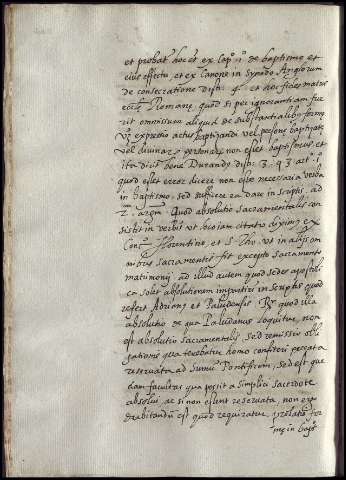 et probat hoc et ex Cap.º 1º de baptismo et
eius effectu, et ex Canone in Synodo Anglorum
de consecratione dist. 4. et hoc fides matris
eccłe Romane, quod si per ignorantiam fue
rit omissum aliquid de substantialibo forme
Vz expressio actus baptizandi vel persone baptizate
vel diuinar personar, non esset baptismus et
ita dicit bene Durandus dist. 3. q. 3 art.º 1º
quod esset error dicere non esse necessaria verba
in baptismo, sed sufficere ea dare in scriptis. ad
2. argm. Quod absolutio sacramentalis con
sistit in verbis ut uociam citatis diximus ex
Conc. Florentino, et S. Tho. ut in aliis om
nibus sacramentis fit excepto sacramento
matrimonij ad illud autem quod sedes apostoli
ca solet absolutionem impartiri in scriptis quod
refert Adrianus et Paludensis Rx quod illa
absolutio de qua Paludanus loquitur, non
est absolutio sacramentalis, sed remissio obli
gationis qua tenebatur homo confiteri peccata
reseruata ad Sumū Pontificem, sed est que
dam facultas qua possit a simplici sacerdote
absolui, ac si non essent reseruata, non ex
drabitandū est quod requiratur, prelatis for
me in bapt